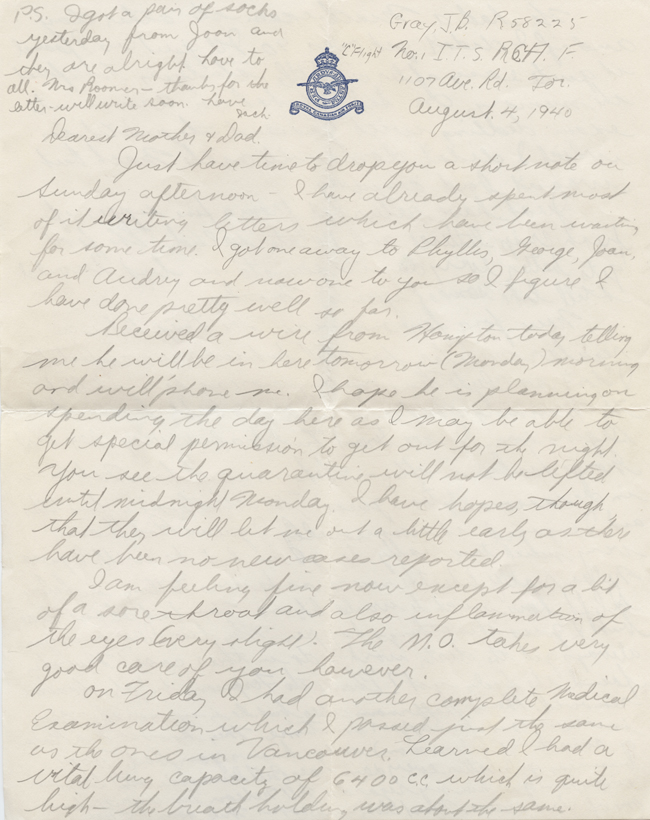 P.S. I got a pair of socks
yesterday from Joan and
they are alright. Love to
all. Mrs Roomer - thanks for the
letter - will write soon. have
Jack.
Gray, J.B. R58225
"C" Flight No. 1 I.T.S. R.C.A.F.
1107 Ave. Rd. Tor.
August. 4, 1940
Dearest Mother & Dad.
Just have time to drop you a short note on
Sunday afternoon - I have already spent most
of it writing letters which have been waiting
for some time. I got one away to Phyllis, George, Joan,
and Audrey and now one to you so I figure I
have done pretty well so far.
Received a wire from Hampton today telling
me he will be in here tomorrow (Monday) morning
and will phone me. I hope he is planning on
spending the day here as I may be able to
get special permission to get out for the night.
You see the quarantine will not be lifted
until midnight Monday. I have hopes, though
that they will let me out a little early as there
have been no new cases reported.
I am feeling fine now except for a bit
of a sore throat and also inflammation of
the eyes (very slight). The M.O. takes very
good care of you however.
On Friday I had another complete Medical
Examination which I passed just the same
as the ones in Vancouver. Learned I had a
vital lung capacity of 6400 c.c. which is quite
high - the breath holding was about the same.